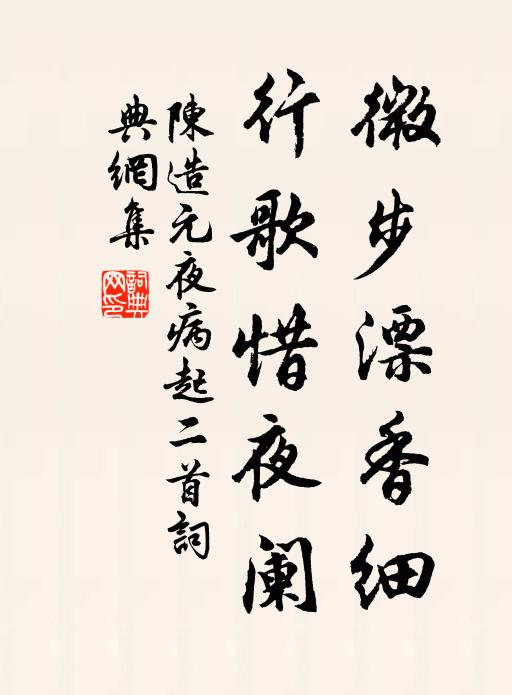 微步漂香细
行歌惜夜阑
陳造元夜病起二首詞
典網集
詞典
网印